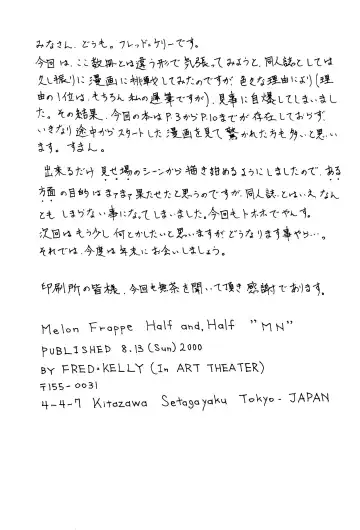 みなさん、どうも。フレッド・ケリーです。
今回は、ここ数冊とは違う形で気張ってみようと、同人誌としては
久し振りに漫画に挑戦してみたのですが、色々な理由により(理
由の1位は、もちろん私の遅筆ですが)、見事に自爆してしまいまし
た。その結果、今回の本はP.3からP.10までが存在しておらず、
いきなり途中からスタートした漫画を見て驚かれた方も多いと思い
ます。すまん。
出来るだけ見せ場のシーンから描き始めるようにしましたので、ある
方面の目的はまぁまぁ果たせたと思うのですが、同人誌とはいえなん
ともしまらない事になってしまいました。今回もトホホでやんす。
次回はもう少し何とかしたいと思いますがどうなります事やら…。
それでは、今度は年末にお会いしましょう。
印刷所の皆様、今回も無茶を聞いて頂き感謝であります。
Melon Frappe Half and, Half "MN"
PUBLISHED 8.13 (Sun) 2000
BY FRED・KELLY (In ART THEATER)
〒155-0031
4-4-7 Kitazawa Setagayaku Tokyo-JAPAN